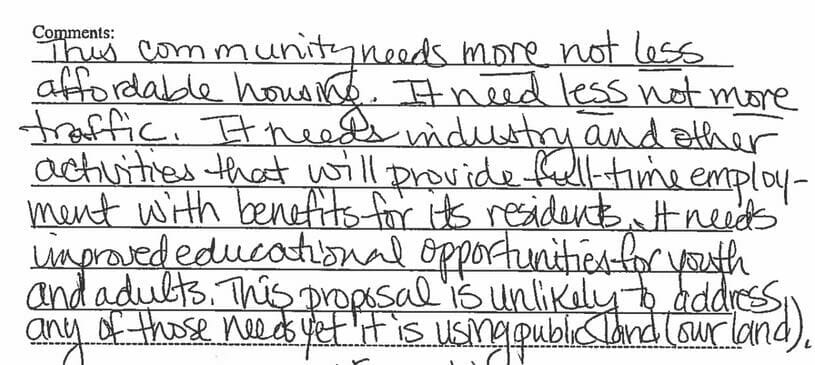 Comments:
This community needs more not less
affordable housing. It need less not more
traffic. It needs industry and other
activities that will provide full-time employ-
ment with benefits for its residents. It needs
improved educational opportunities for youth
and adults. This proposal is unlikely to address
any of those needs yet it is using public land (our land).